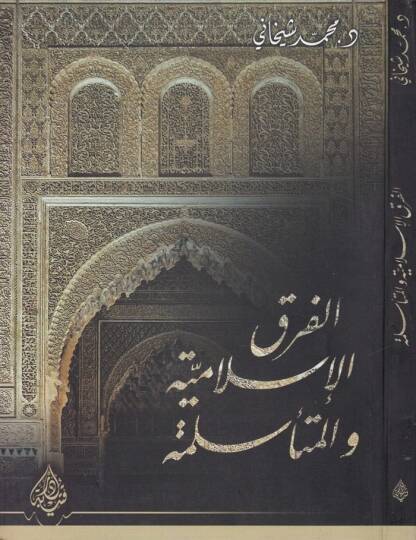 د. محمد شيخاني
الفرق
الإسلاميّة
والمتأسلمة
د. محمد شيخاني
الفرق الإسلامية والمتأسلمة
دار قتيبة